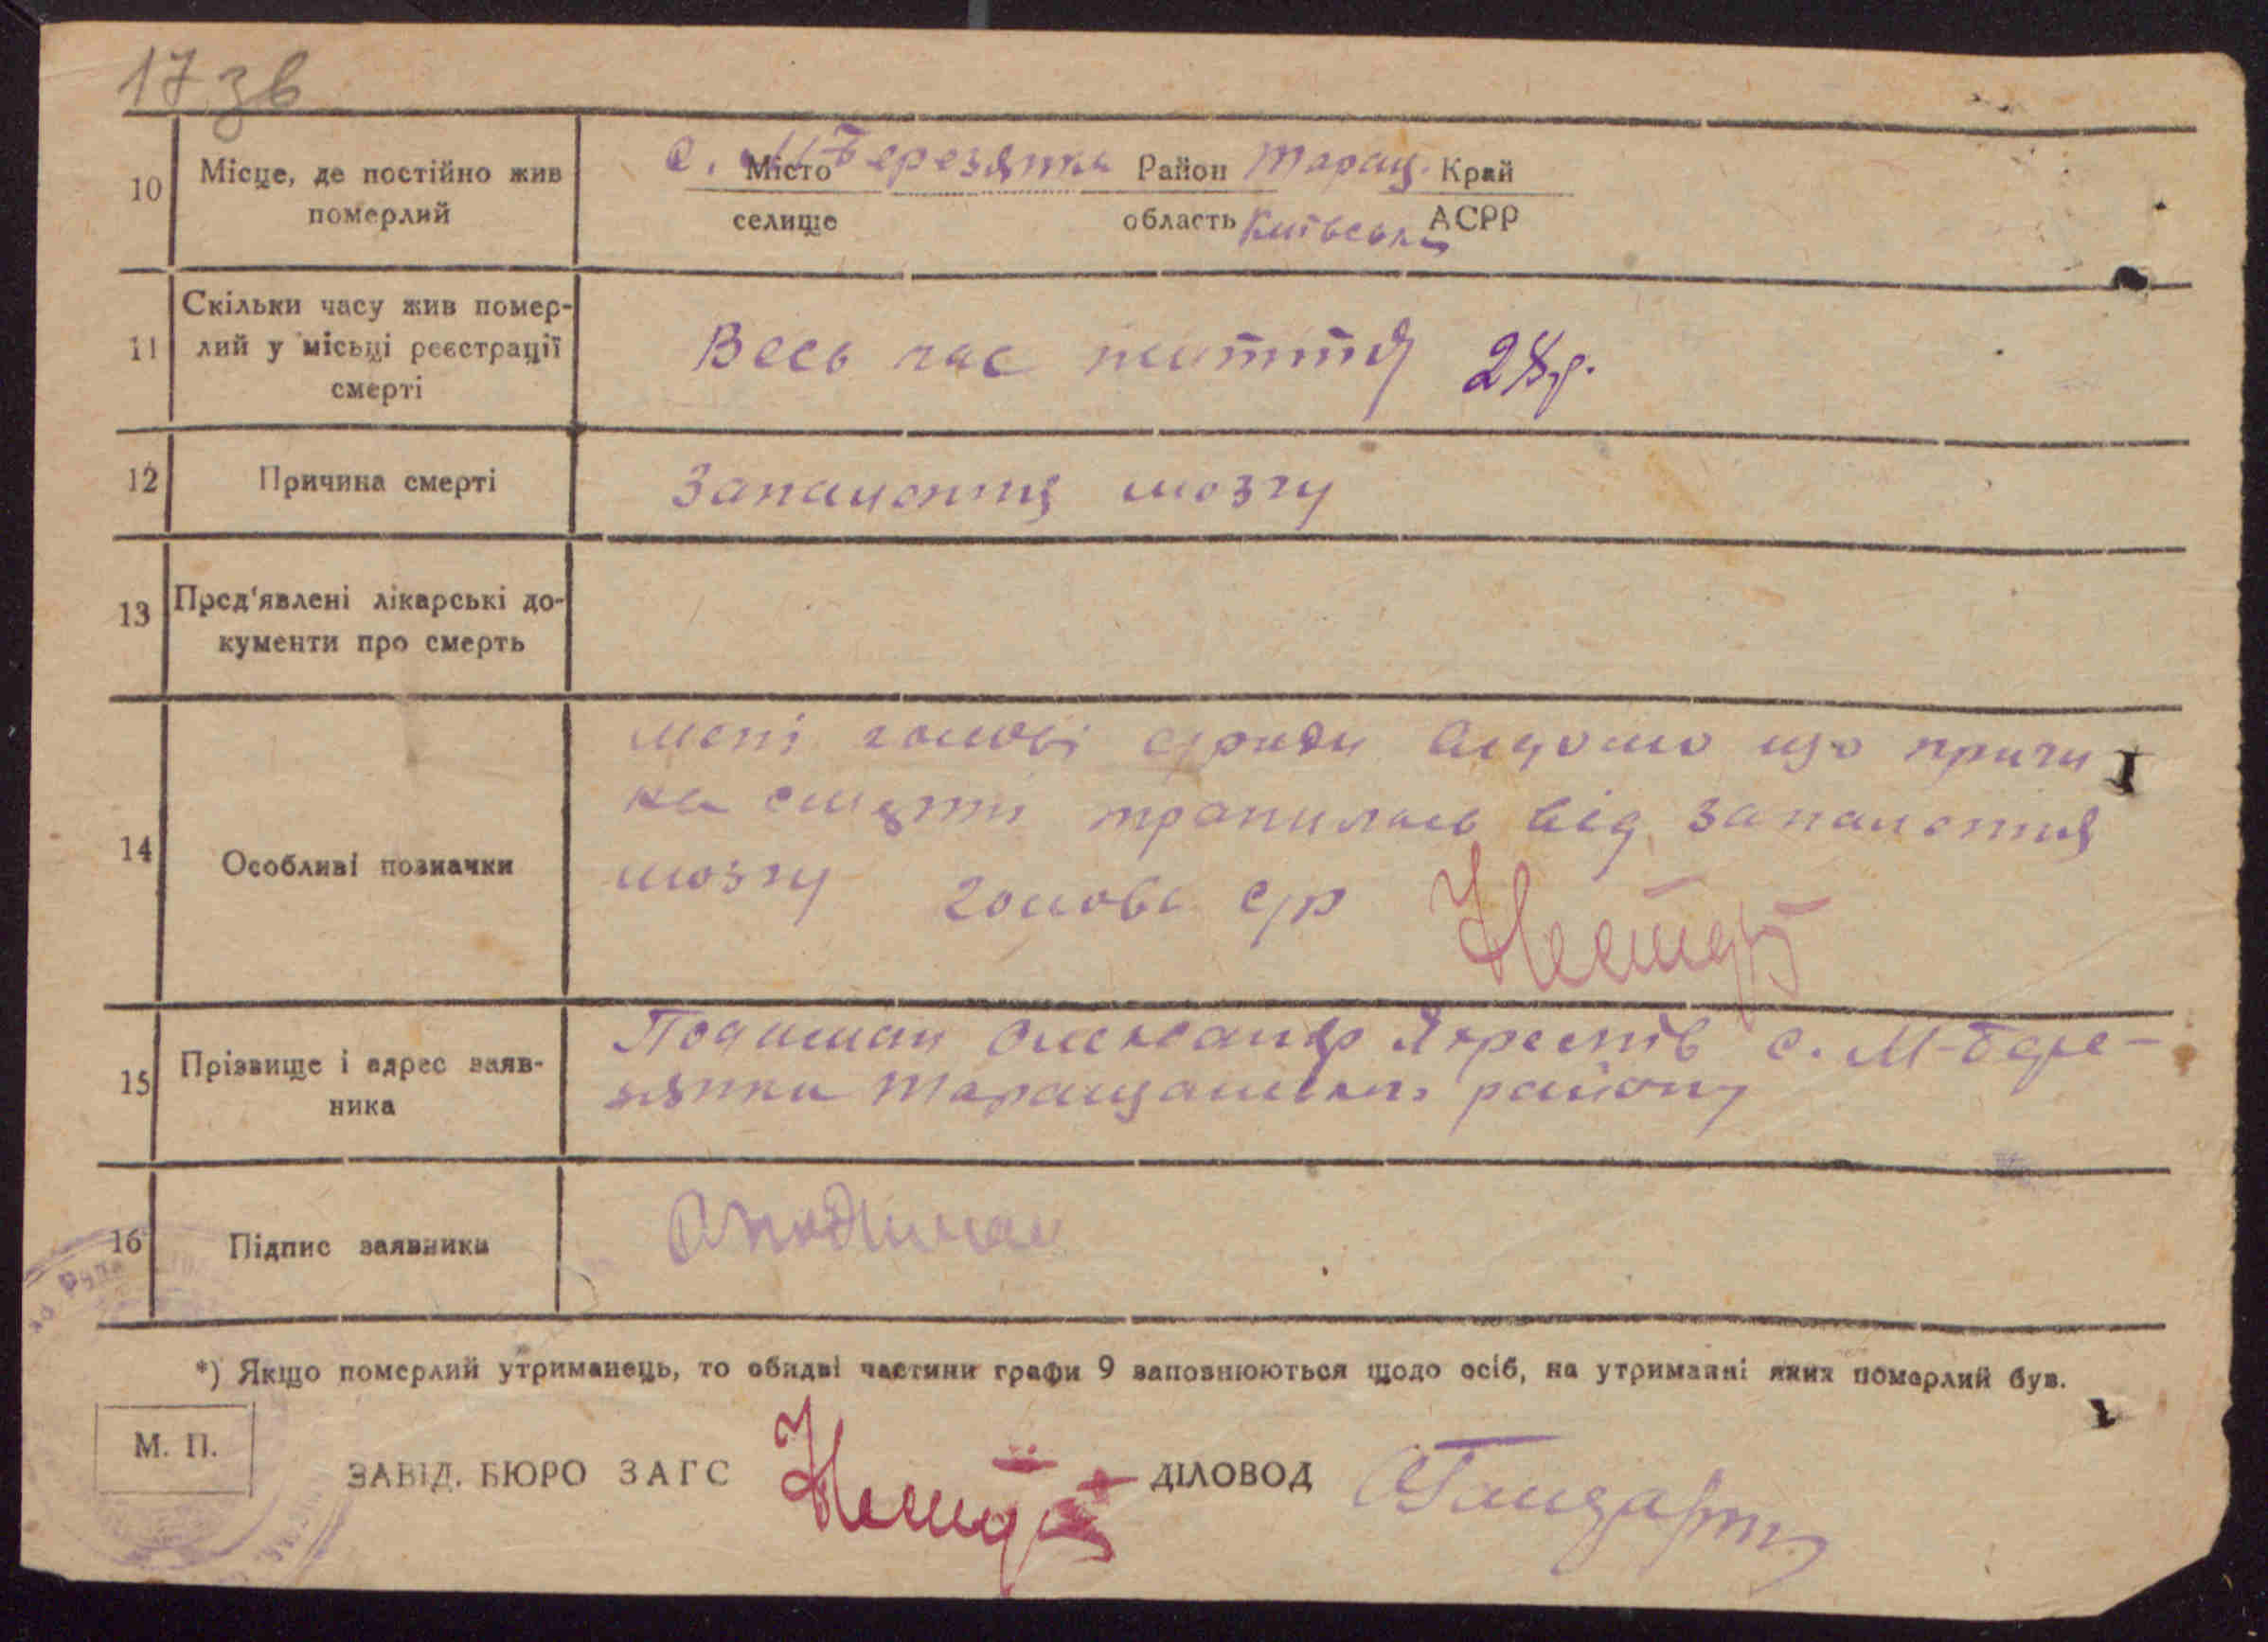 17 зв
10 Місце, де постійно жив
померлий
с. М Березянка Район Таращ. Край
Місто
селище область Київська АСРР
11 Скільки часу жив помер-
лий у місьці реєстрації
смерті
Весь час життя 28 р.
12 Причина смерті
Запалення мозгу
13 Пред'явлені лікарські до-
кументи про смерть
14 Особливі позначки
мені голові с/ради відомо що причи
на смерти трапилась від запалення
мозгу голова с/р
15 Прізвище і адрес заяв-
ника
Подиман Олександр с. М-Бере-
зянка Таращанського району
16 Підпис заявника
*) Якщо померлий утриманець, то обидві частини графи 9 заповнюються щодо осіб, на утриманні яких померлий був.
М. П.
ЗАВІД. БЮРО ЗАГС ДІЛОВОД